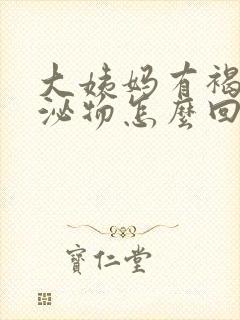 大姨妈有褐
泌物怎麼回
寶仁堂